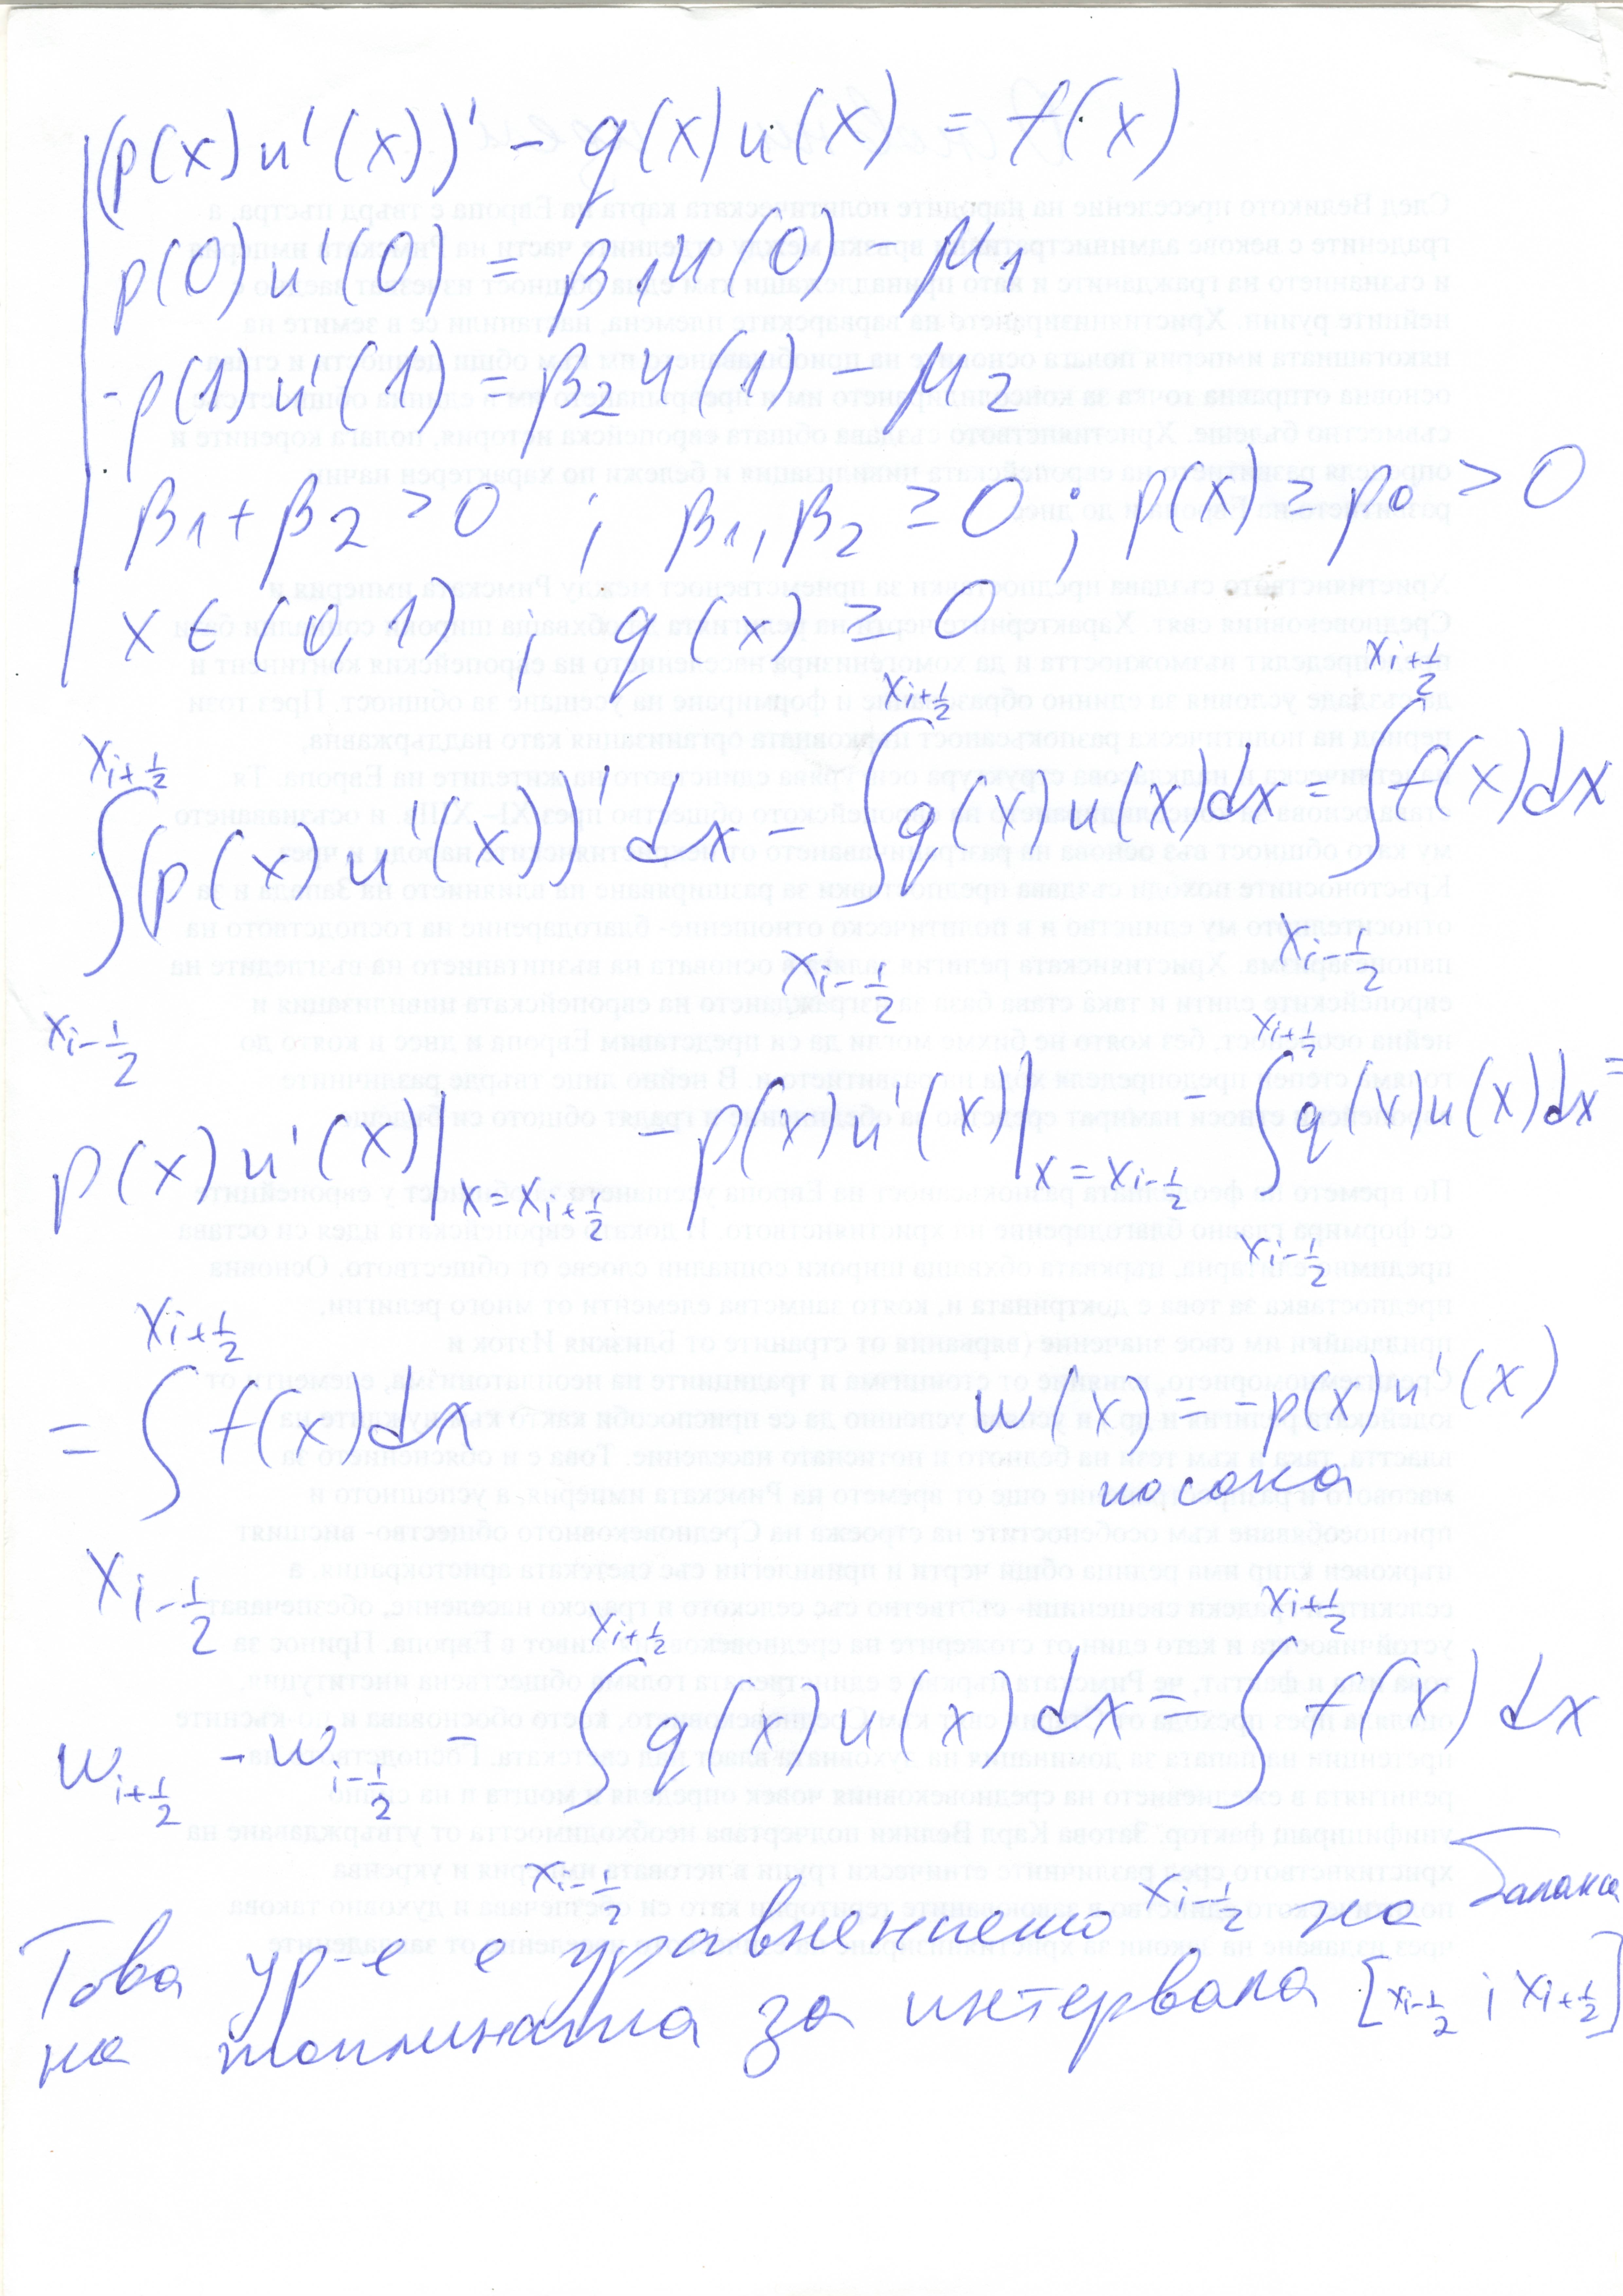 (p(x)u'(x))' - q(x)u(x) = f(x)
p(0)u'(0) = β₁u(0) - μ₁
-p(1)u'(1) = β₂u(1) - μ₂
β₁+β₂ > 0 ; β₁,β₂ ≥ 0 ; p(x) ≥ p₀ > 0
x ∈ (0,1) ; q(x) ≥ 0
∫_{x_{i-1/2}}^{x_{i+1/2}} (p(x)u'(x))' dx - ∫_{x_{i-1/2}}^{x_{i+1/2}} q(x)u(x)dx = ∫_{x_{i-1/2}}^{x_{i+1/2}} f(x)dx
p(x)u'(x)|_{x=x_{i+1/2}} - p(x)u'(x)|_{x=x_{i-1/2}} - ∫_{x_{i-1/2}}^{x_{i+1/2}} q(x)u(x)dx =
= ∫_{x_{i-1/2}}^{x_{i+1/2}} f(x)dx w(x) = -p(x)u'(x)
посока
w_{i+1/2} - w_{i-1/2} - ∫_{x_{i-1/2}}^{x_{i+1/2}} q(x)u(x)dx = ∫_{x_{i-1/2}}^{x_{i+1/2}} f(x)dx
Това ур-е е уравнението на баланса
на топлината за интервала [x_{i-1/2} ; x_{i+1/2}]